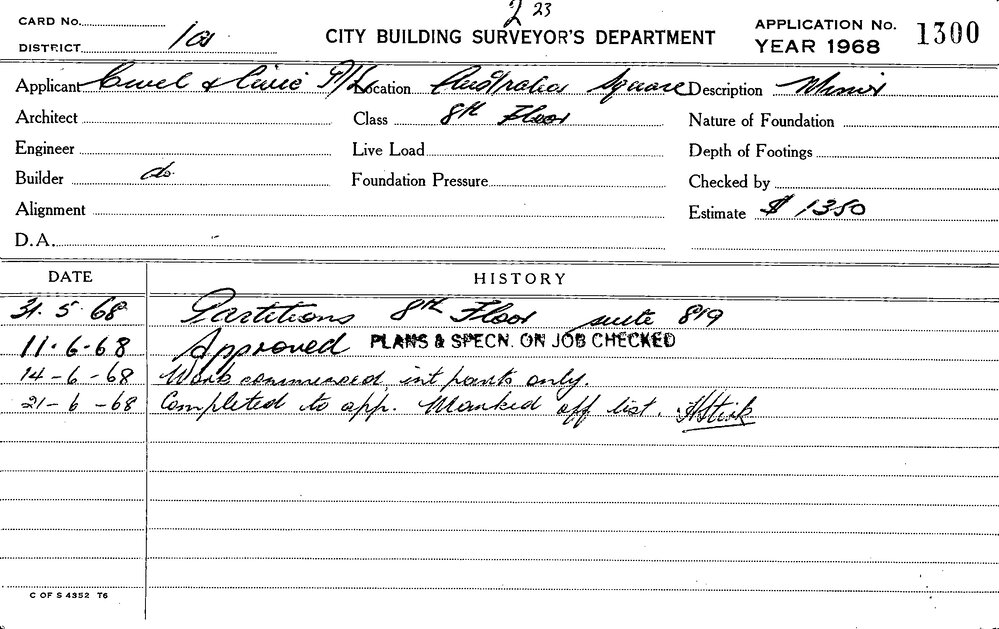 2 23
CARD No.
DISTRICT
CITY BUILDING SURVEYOR'S DEPARTMENT
APPLICATION No. 1300
YEAR 1968
Applicant Civil & Civic P/L Location Australia Square Description Minor
Architect Class 8th Floor Nature of Foundation
Engineer Live Load Depth of Footings
Builder do Foundation Pressure Checked by
Alignment Estimate $ 1350
D.A.
DATE HISTORY
31. 5. 68 Partitions 8th Floor suite 819
11.6.68 Approved PLANS & SPECN. ON JOB CHECKED
14-6-68 Work commenced, int parts only.
21-6-68 Completed to app. Marked off list.
C OF S 4352 T6